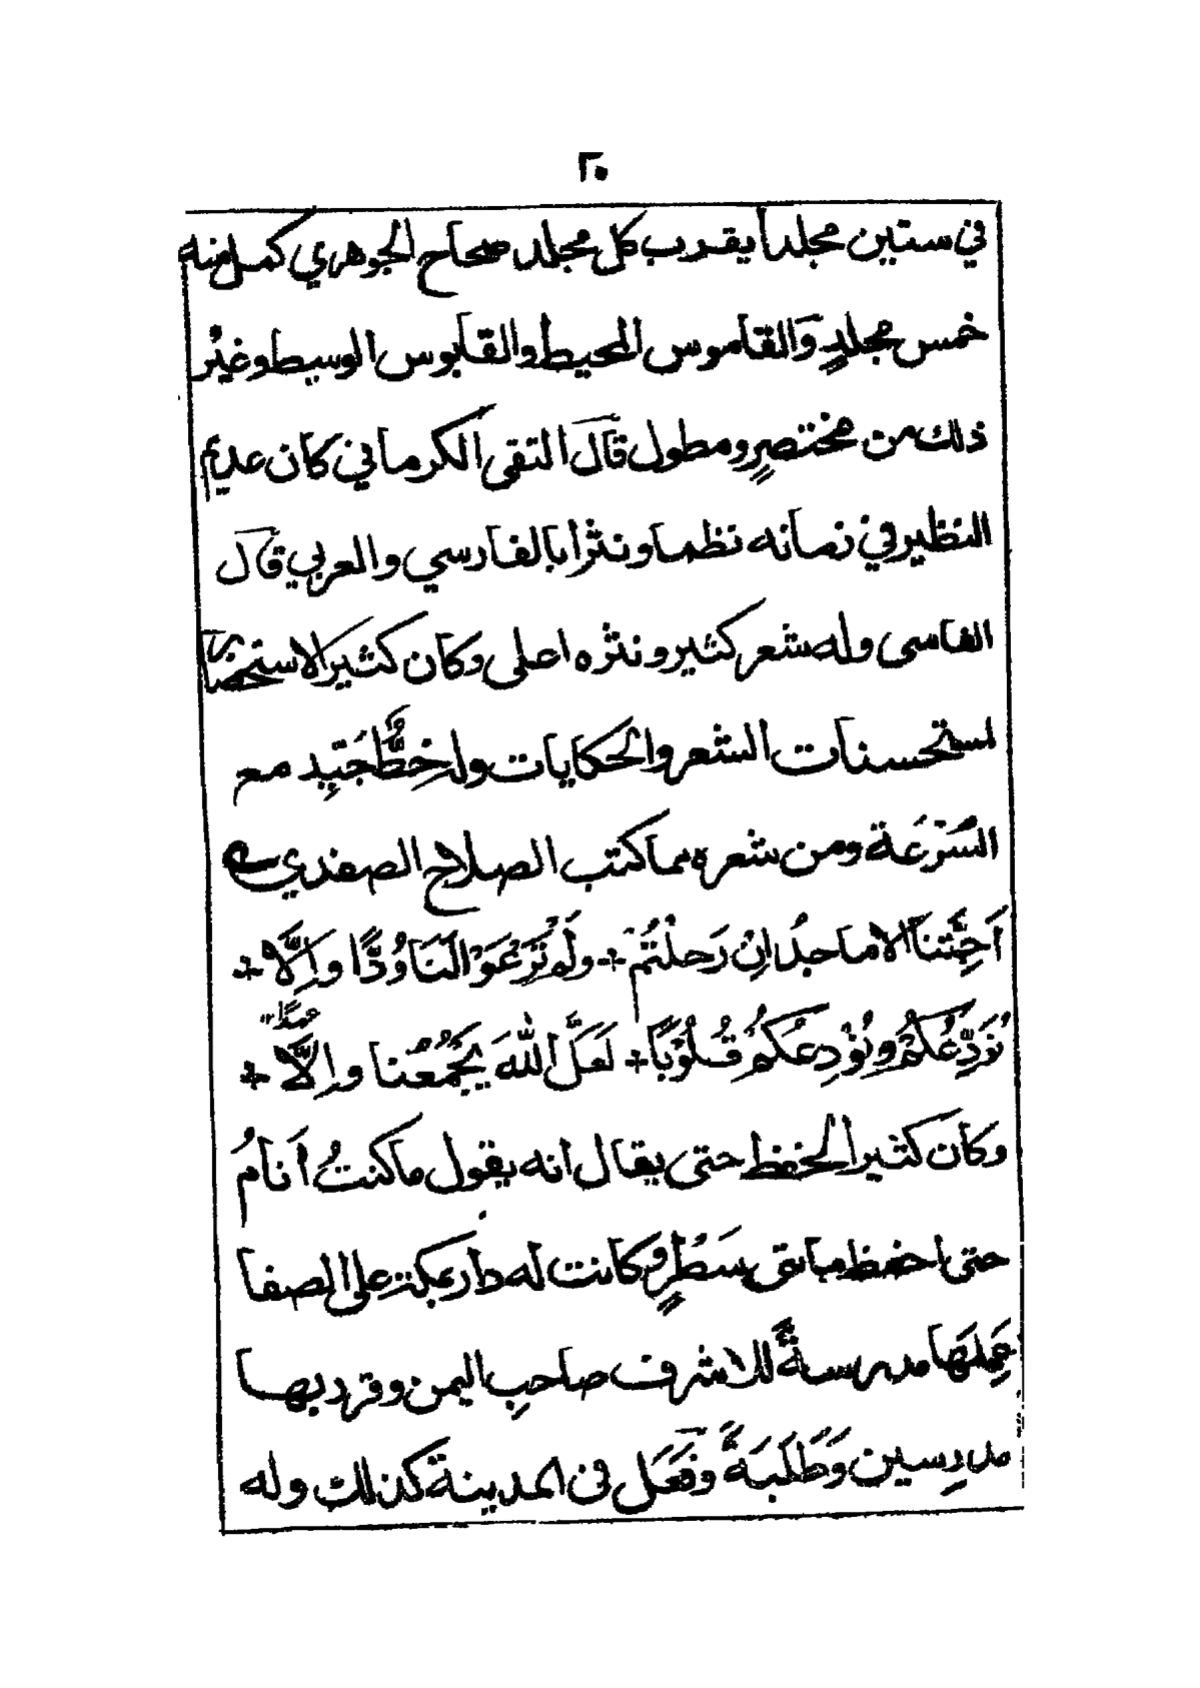 ٢٠
في ستين مجلداً يقرب كل مجلد صحاح الجوهري كمل منه
خمس مجلدٍ والقاموس المحيط والقابوس الوسيط وغير
ذلك من مختصرٍ ومطول قال التقى الكرماني كان عديم
النظير في زمانه نظما ونثرا بالفارسي والعربي قال
الفاسى وله شعر كثير ونثره اعلى وكان كثير الاستحضار
لمستحسنات الشعر والحكايات وله خطٌّ جَيِّد مع
السُرْعَة ومن شعره مما كتب الصلاح الصفدي
أَحِبَّتنا الاماجدُ انْ رَحلتُم ÷ ولَم تَرْعَوْا لَنَا وُدًّا واِلَّا ÷
عهدًا
نُوَدِّعُكُمْ ونُوْدِعكُمُ قُلُوْبًا ÷ لَعَلَّ اللهَ يَجْمَعُنَا واِلَّا ÷
وكان كثير الحفظ حتى يقال انه يقول ما كنتُ أَنامُ
حتى احفظ مايتى سَطْرٍ وكانت له دار بمكة على الصفا
عَمِلَهَا مدرسةً للاشرف صاحبِ اليمن وقرر بها
مدرِسين وَطَلَبَةً وفَعَل فى المدينة كذلك وله